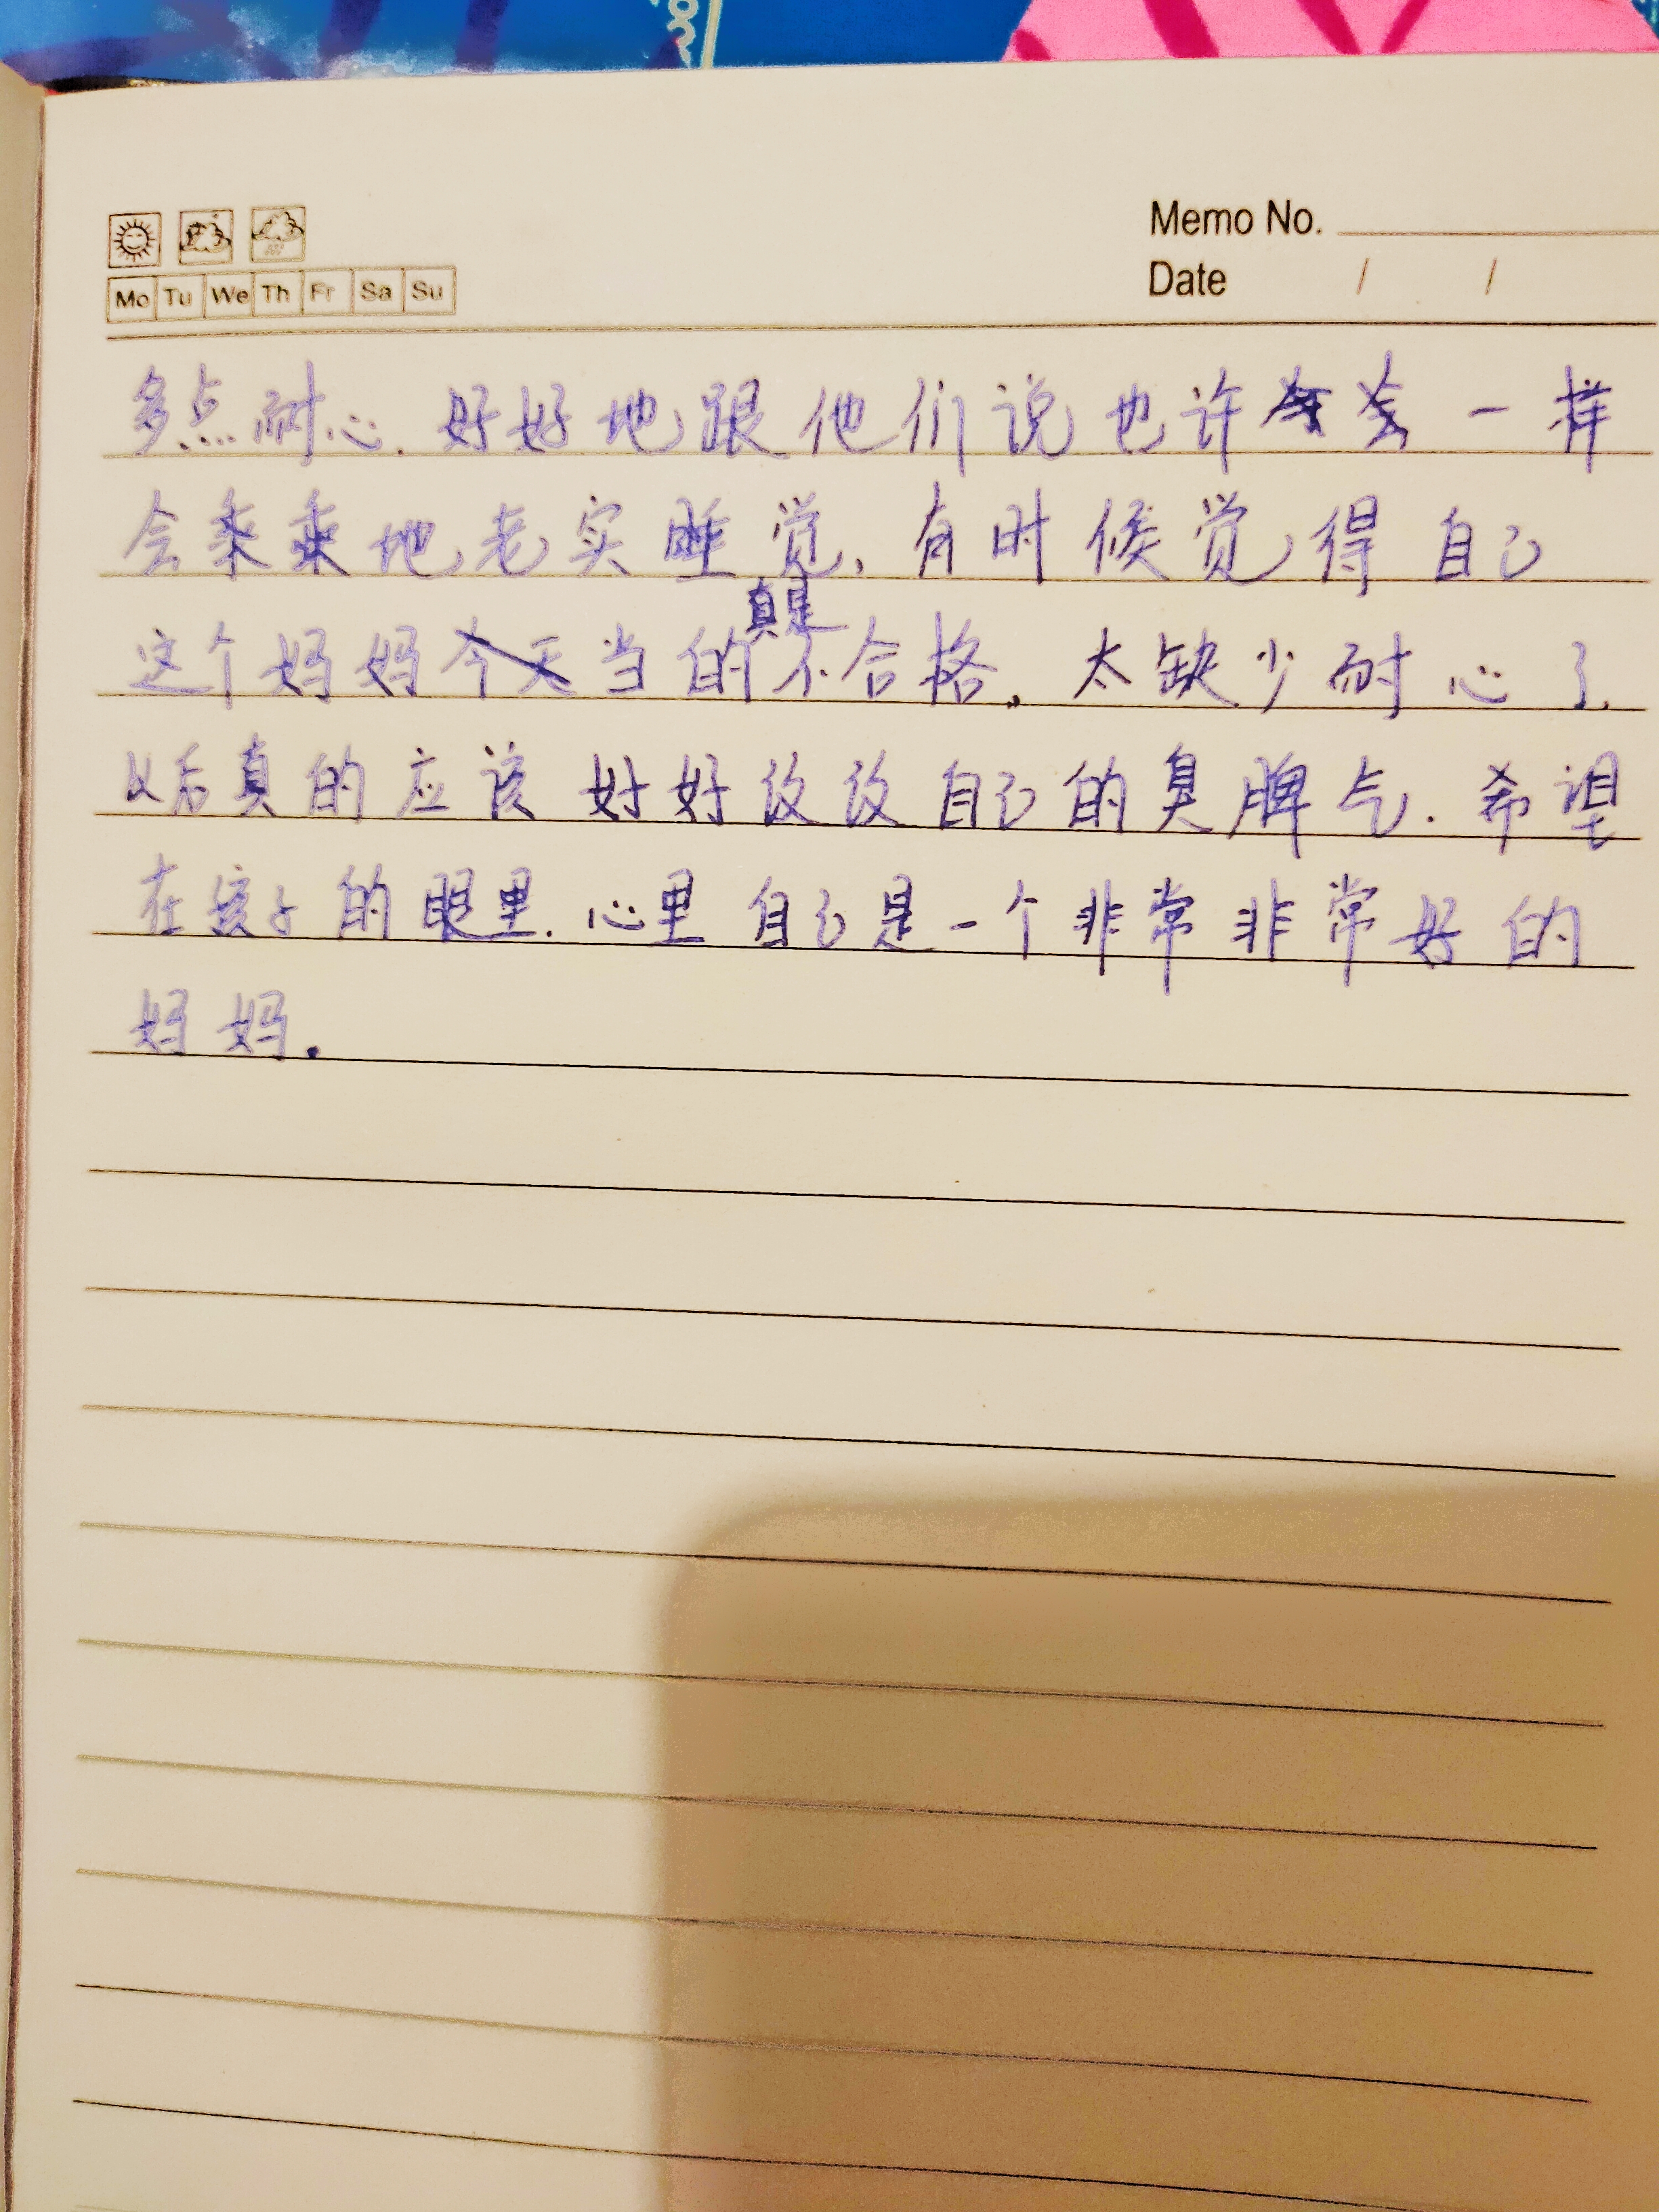 Memo No.
Mo Tu We Th Fr Sa Su
Date / /
多点耐心.好好地跟他们说也许会一样
会乖乖地老实睡觉,有时候觉得自己
真是
这个妈妈今天当的不合格,太缺少耐心了.
以后真的应该好好改改自己的臭脾气.希望
在孩子的眼里.心里自己是一个非常非常好的
妈妈.